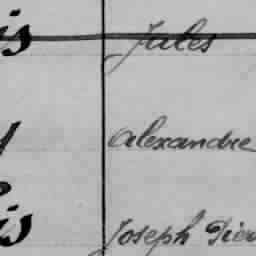 is Jules
Alexandre
is Joseph Pier